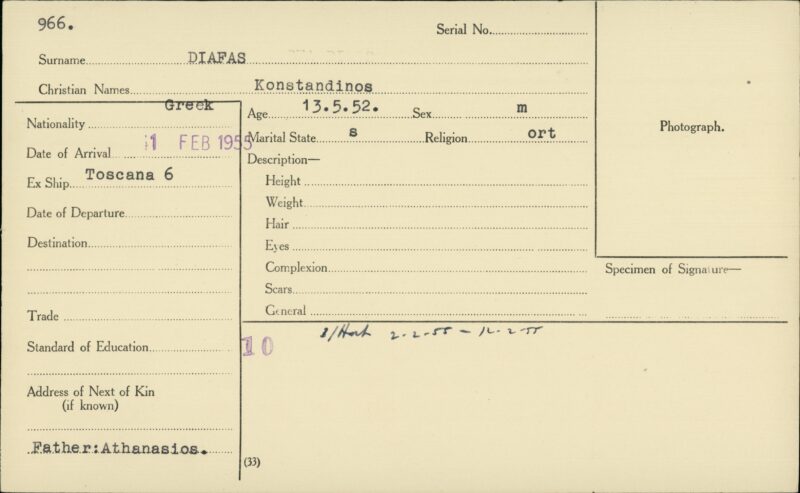 966.
Serial No.
Surname DIAFAS
Christian Names Konstandinos
Nationality Greek
Date of Arrival 1 FEB 1955
Ex Ship Toscana 6
Date of Departure
Destination
Trade
Standard of Education
Address of Next of Kin
(if known)
Father:Athanasios.
Age 13.5.52. Sex m
Marital State s Religion ort
Description—
Height
Weight
Hair
Eyes
Complexion
Scars
General
2-2-55 -
10
(33)
Photograph.
Specimen of Signature—